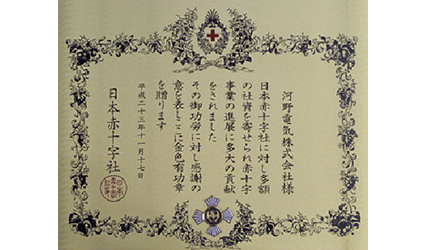 河野電気株式会社様
日本赤十字社に対し多額
の社資を寄せられ赤十字
事業の進展に多大の貢献
をされました
その御功労に対し感謝の
意を表しここに金色有功章
を贈ります
平成二十三年十一月十七日
日本赤十字社